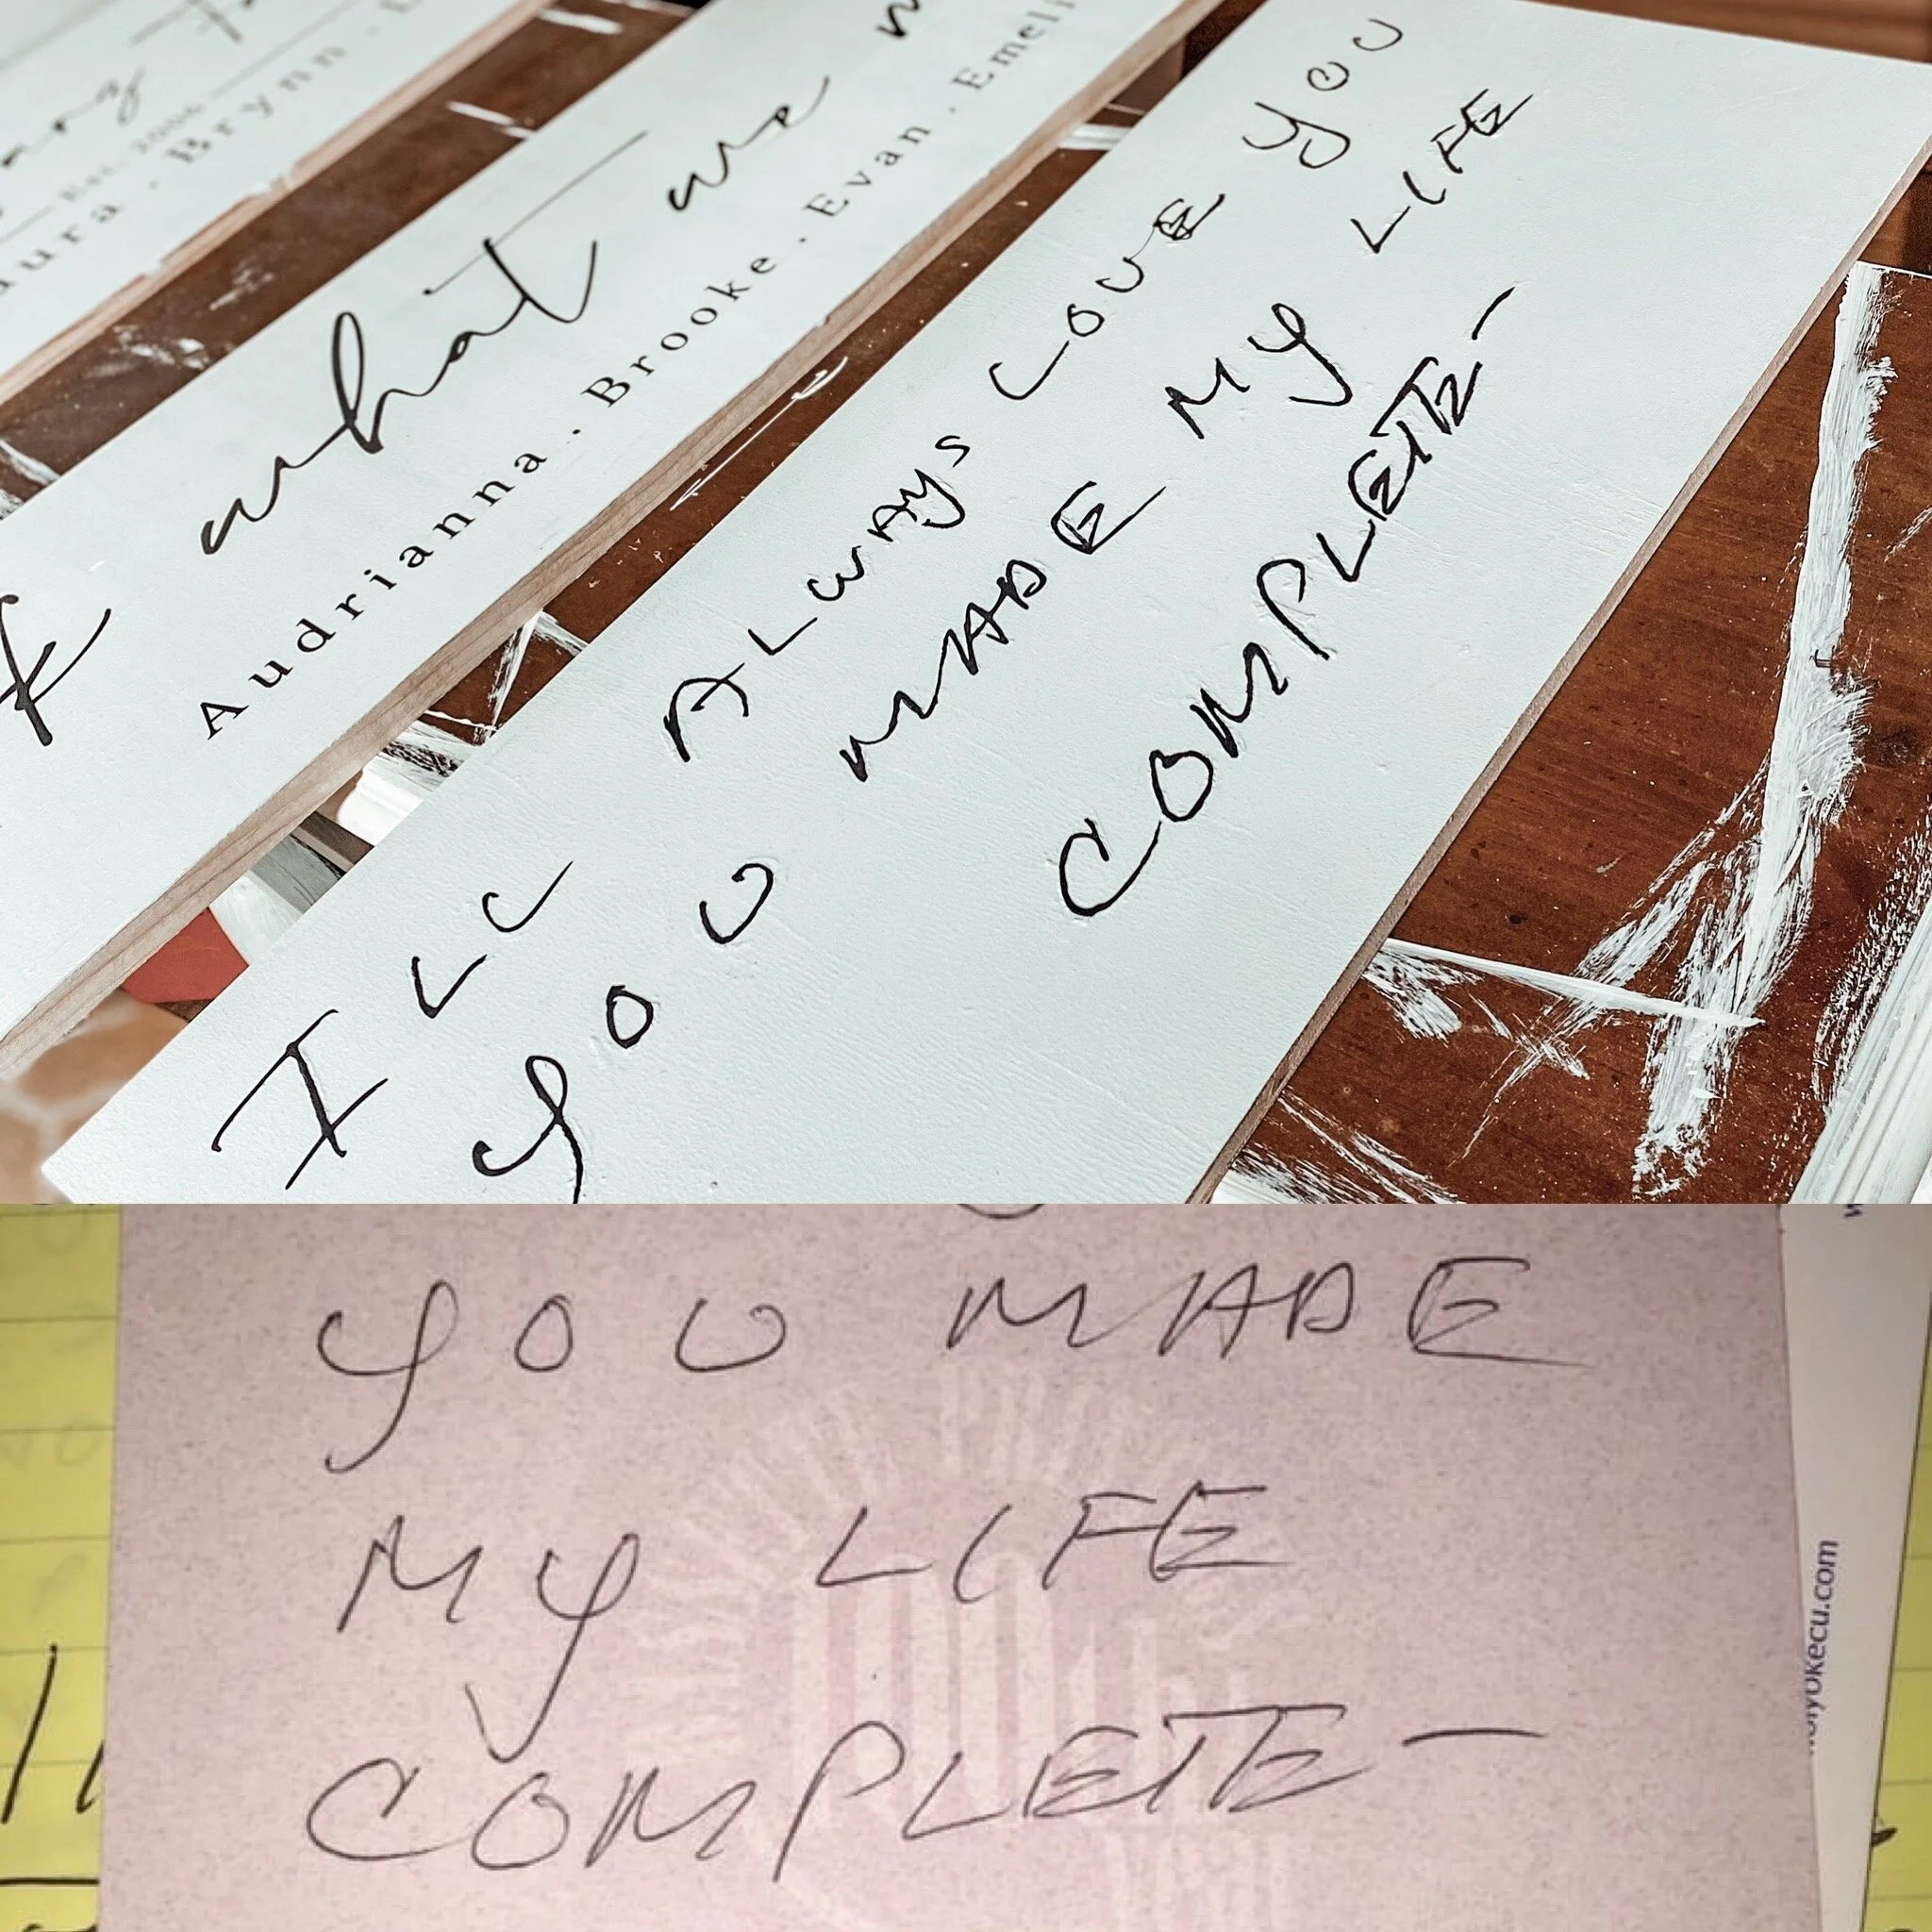 Est. 2006
Brynn
what we
Audrianna . Brooke . Evan .
ILL ALWAYS LOVE YOU
YOU MADE MY LIFE
COMPLETE-
YOU MADE
MY LIFE
COMPLETE-